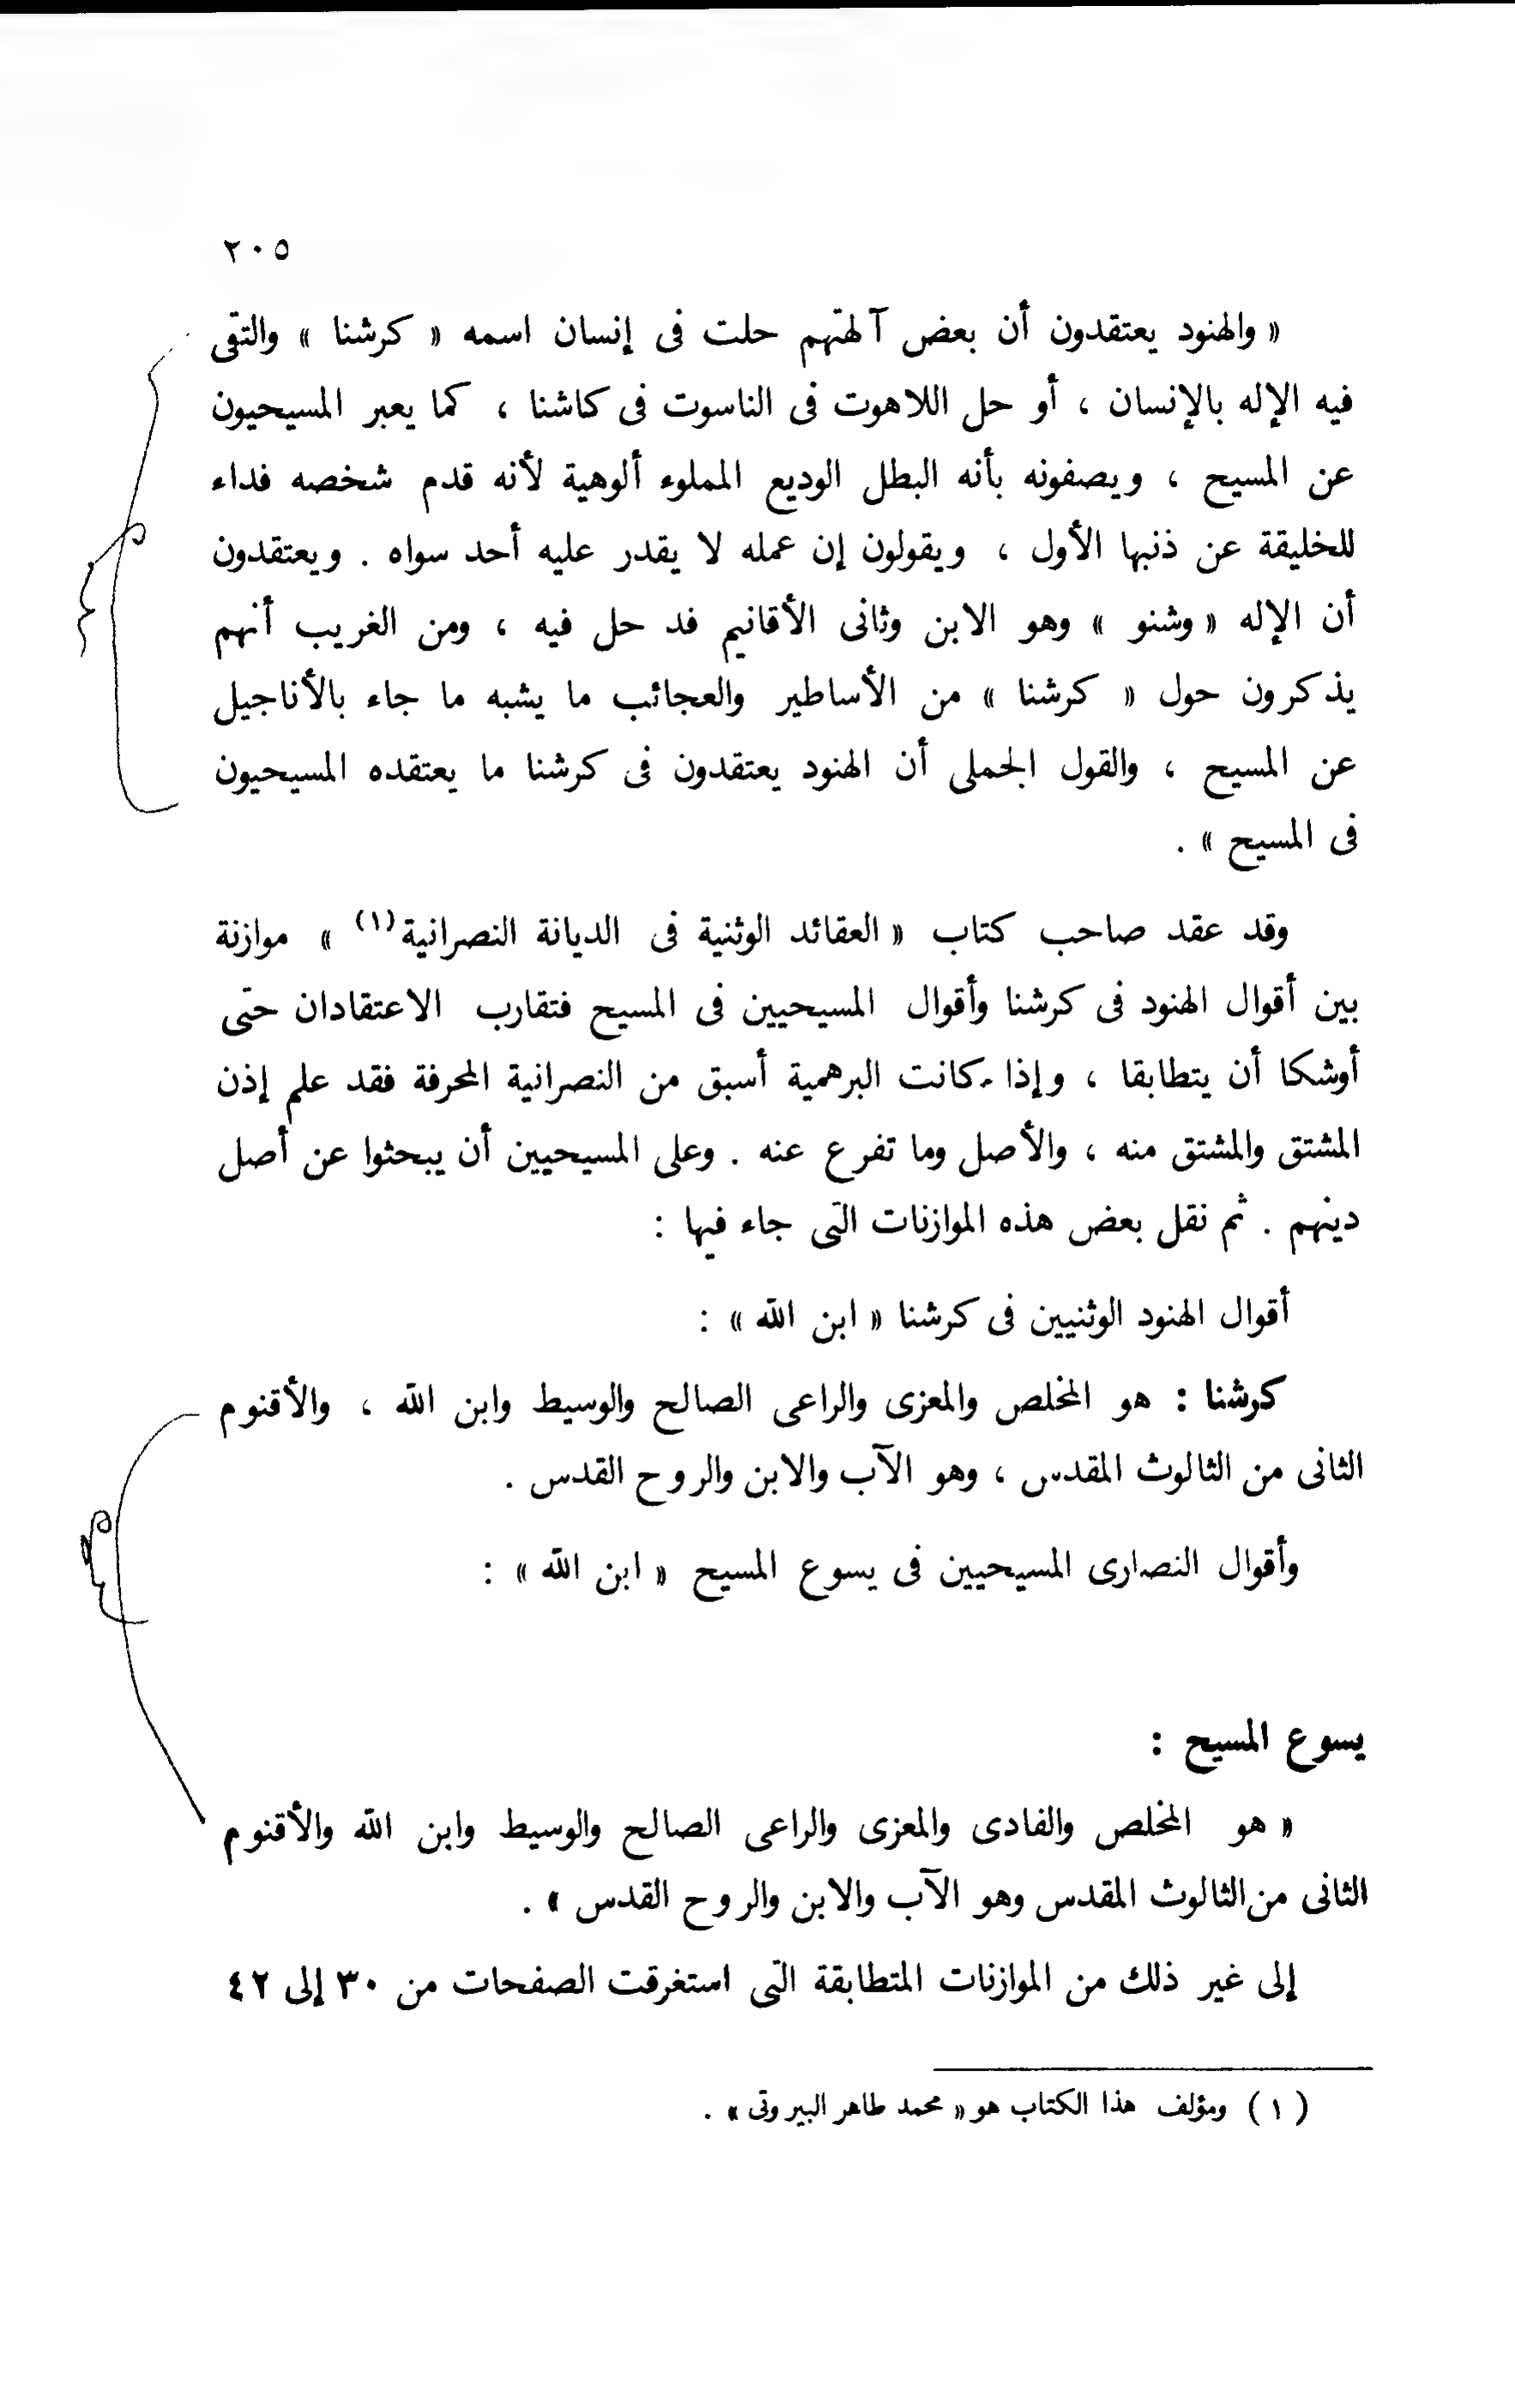 ٢٠٥
« والهنود يعتقدون أن بعض آلهتهم حلت فى إنسان اسمه « كرشنا » والتقى
فيه الإله بالإنسان ، أو حل اللاهوت فى الناسوت فى كاشنا ، كما يعبر المسيحيون
عن المسيح ، ويصفونه بأنه البطل الوديع المملوء ألوهية لأنه قدم شخصه فداء
للخليقة عن ذنبها الأول ، ويقولون إن عمله لا يقدر عليه أحد سواه . ويعتقدون
أن الإله « وشنو » وهو الابن وثانى الأقانيم فد حل فيه ، ومن الغريب أنهم
يذكرون حول « كرشنا » من الأساطير والعجائب ما يشبه ما جاء بالأناجيل
عن المسيح ، والقول الجملى أن الهنود يعتقدون فى كرشنا ما يعتقده المسيحيون
فى المسيح » .
وقد عقد صاحب كتاب « العقائد الوثنية فى الديانة النصرانية(١) » موازنة
بين أقوال الهنود فى كرشنا وأقوال المسيحيين فى المسيح فتقارب الاعتقادان حتى
أوشكا أن يتطابقا ، وإذا كانت البرهمية أسبق من النصرانية المحرفة فقد علم إذن
المشتق والمشتق منه ، والأصل وما تفرع عنه . وعلى المسيحيين أن يبحثوا عن أصل
دينهم . ثم نقل بعض هذه الموازنات التى جاء فيها :
أقوال الهنود الوثنيين فى كرشنا « ابن الله » :
كرشنا : هو المخلص والمعزى والراعى الصالح والوسيط وابن الله ، والأقنوم
الثانى من الثالوث المقدس ، وهو الآب والابن والروح القدس .
وأقوال النصارى المسيحيين فى يسوع المسيح « ابن الله » :
يسوع المسيح :
« هو المخلص والفادى والمعزى والراعى الصالح والوسيط وابن الله والأقنوم
الثانى من الثالوث المقدس وهو الآب والابن والروح القدس » .
إلى غير ذلك من الموازنات المتطابقة التى استغرقت الصفحات من ٣٠ إلى ٤٢
( ١ ) ومؤلف هذا الكتاب هو « محمد طاهر البيروتى » .